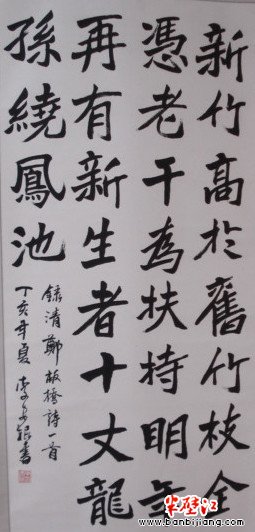 新竹高於舊竹枝全
憑老干為扶持明年
再有新生者十丈龍
孫繞鳳池
錄清鄭板橋詩一首
丁亥年夏書
半壁江
www.banbijiang.com